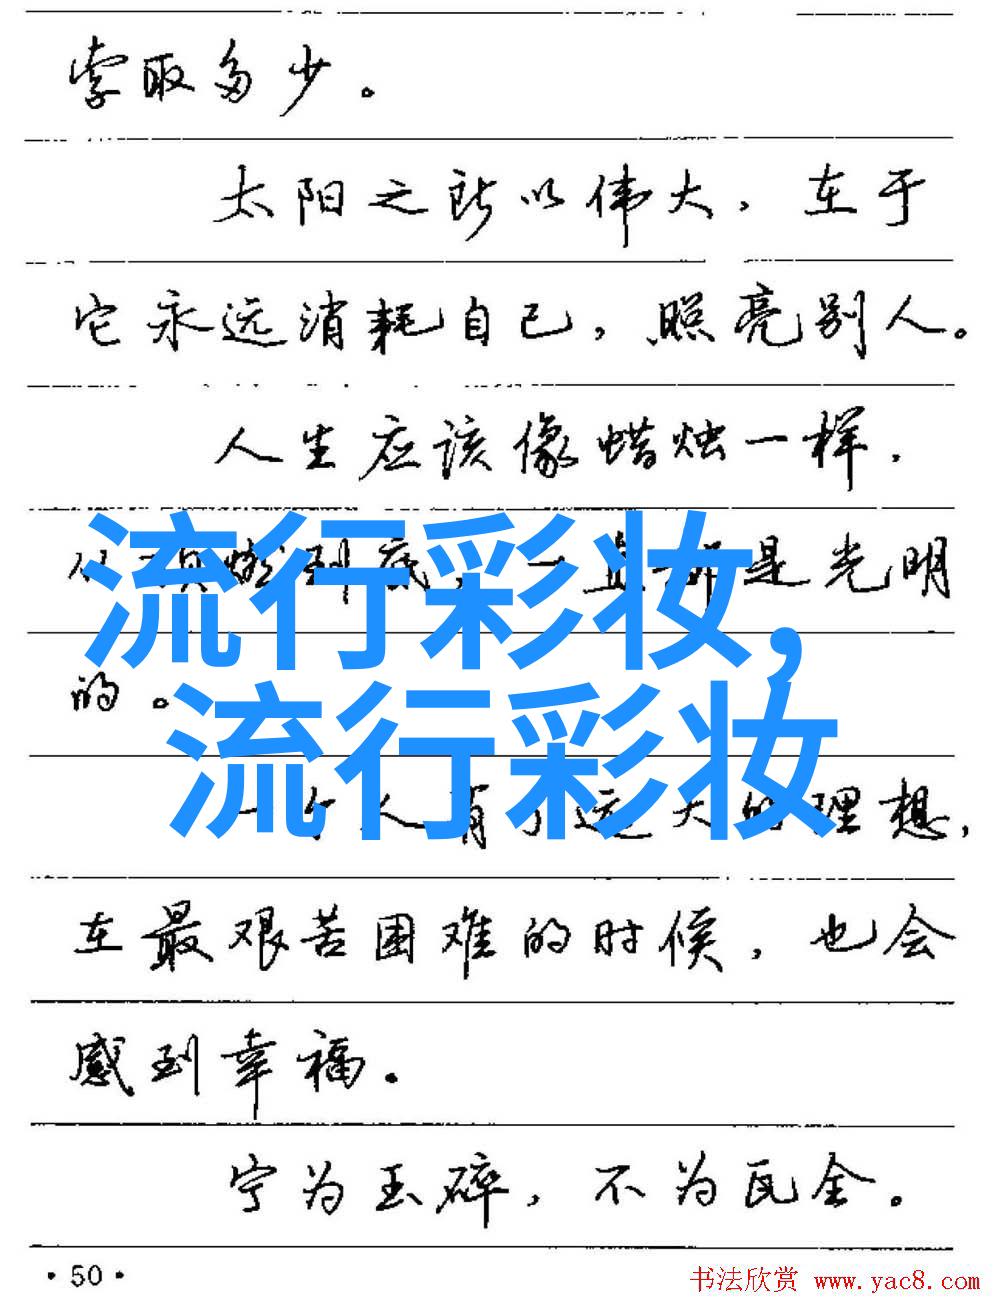 索取多少。
太阳之所以伟大，在于
它永远消耗自己，照亮别人。
人生应该像蜡烛一样，
从顶燃到底，一直都是光明
流行彩妆，
的。
流行彩妆
一个人有了远大的理想，
在最艰苦困难的时候，也会
感到幸福。
宁为玉碎，不为瓦全。
·50·
书法欣赏 www.yac8.com